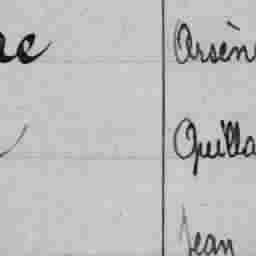 Arsèn
Quilla
Jean